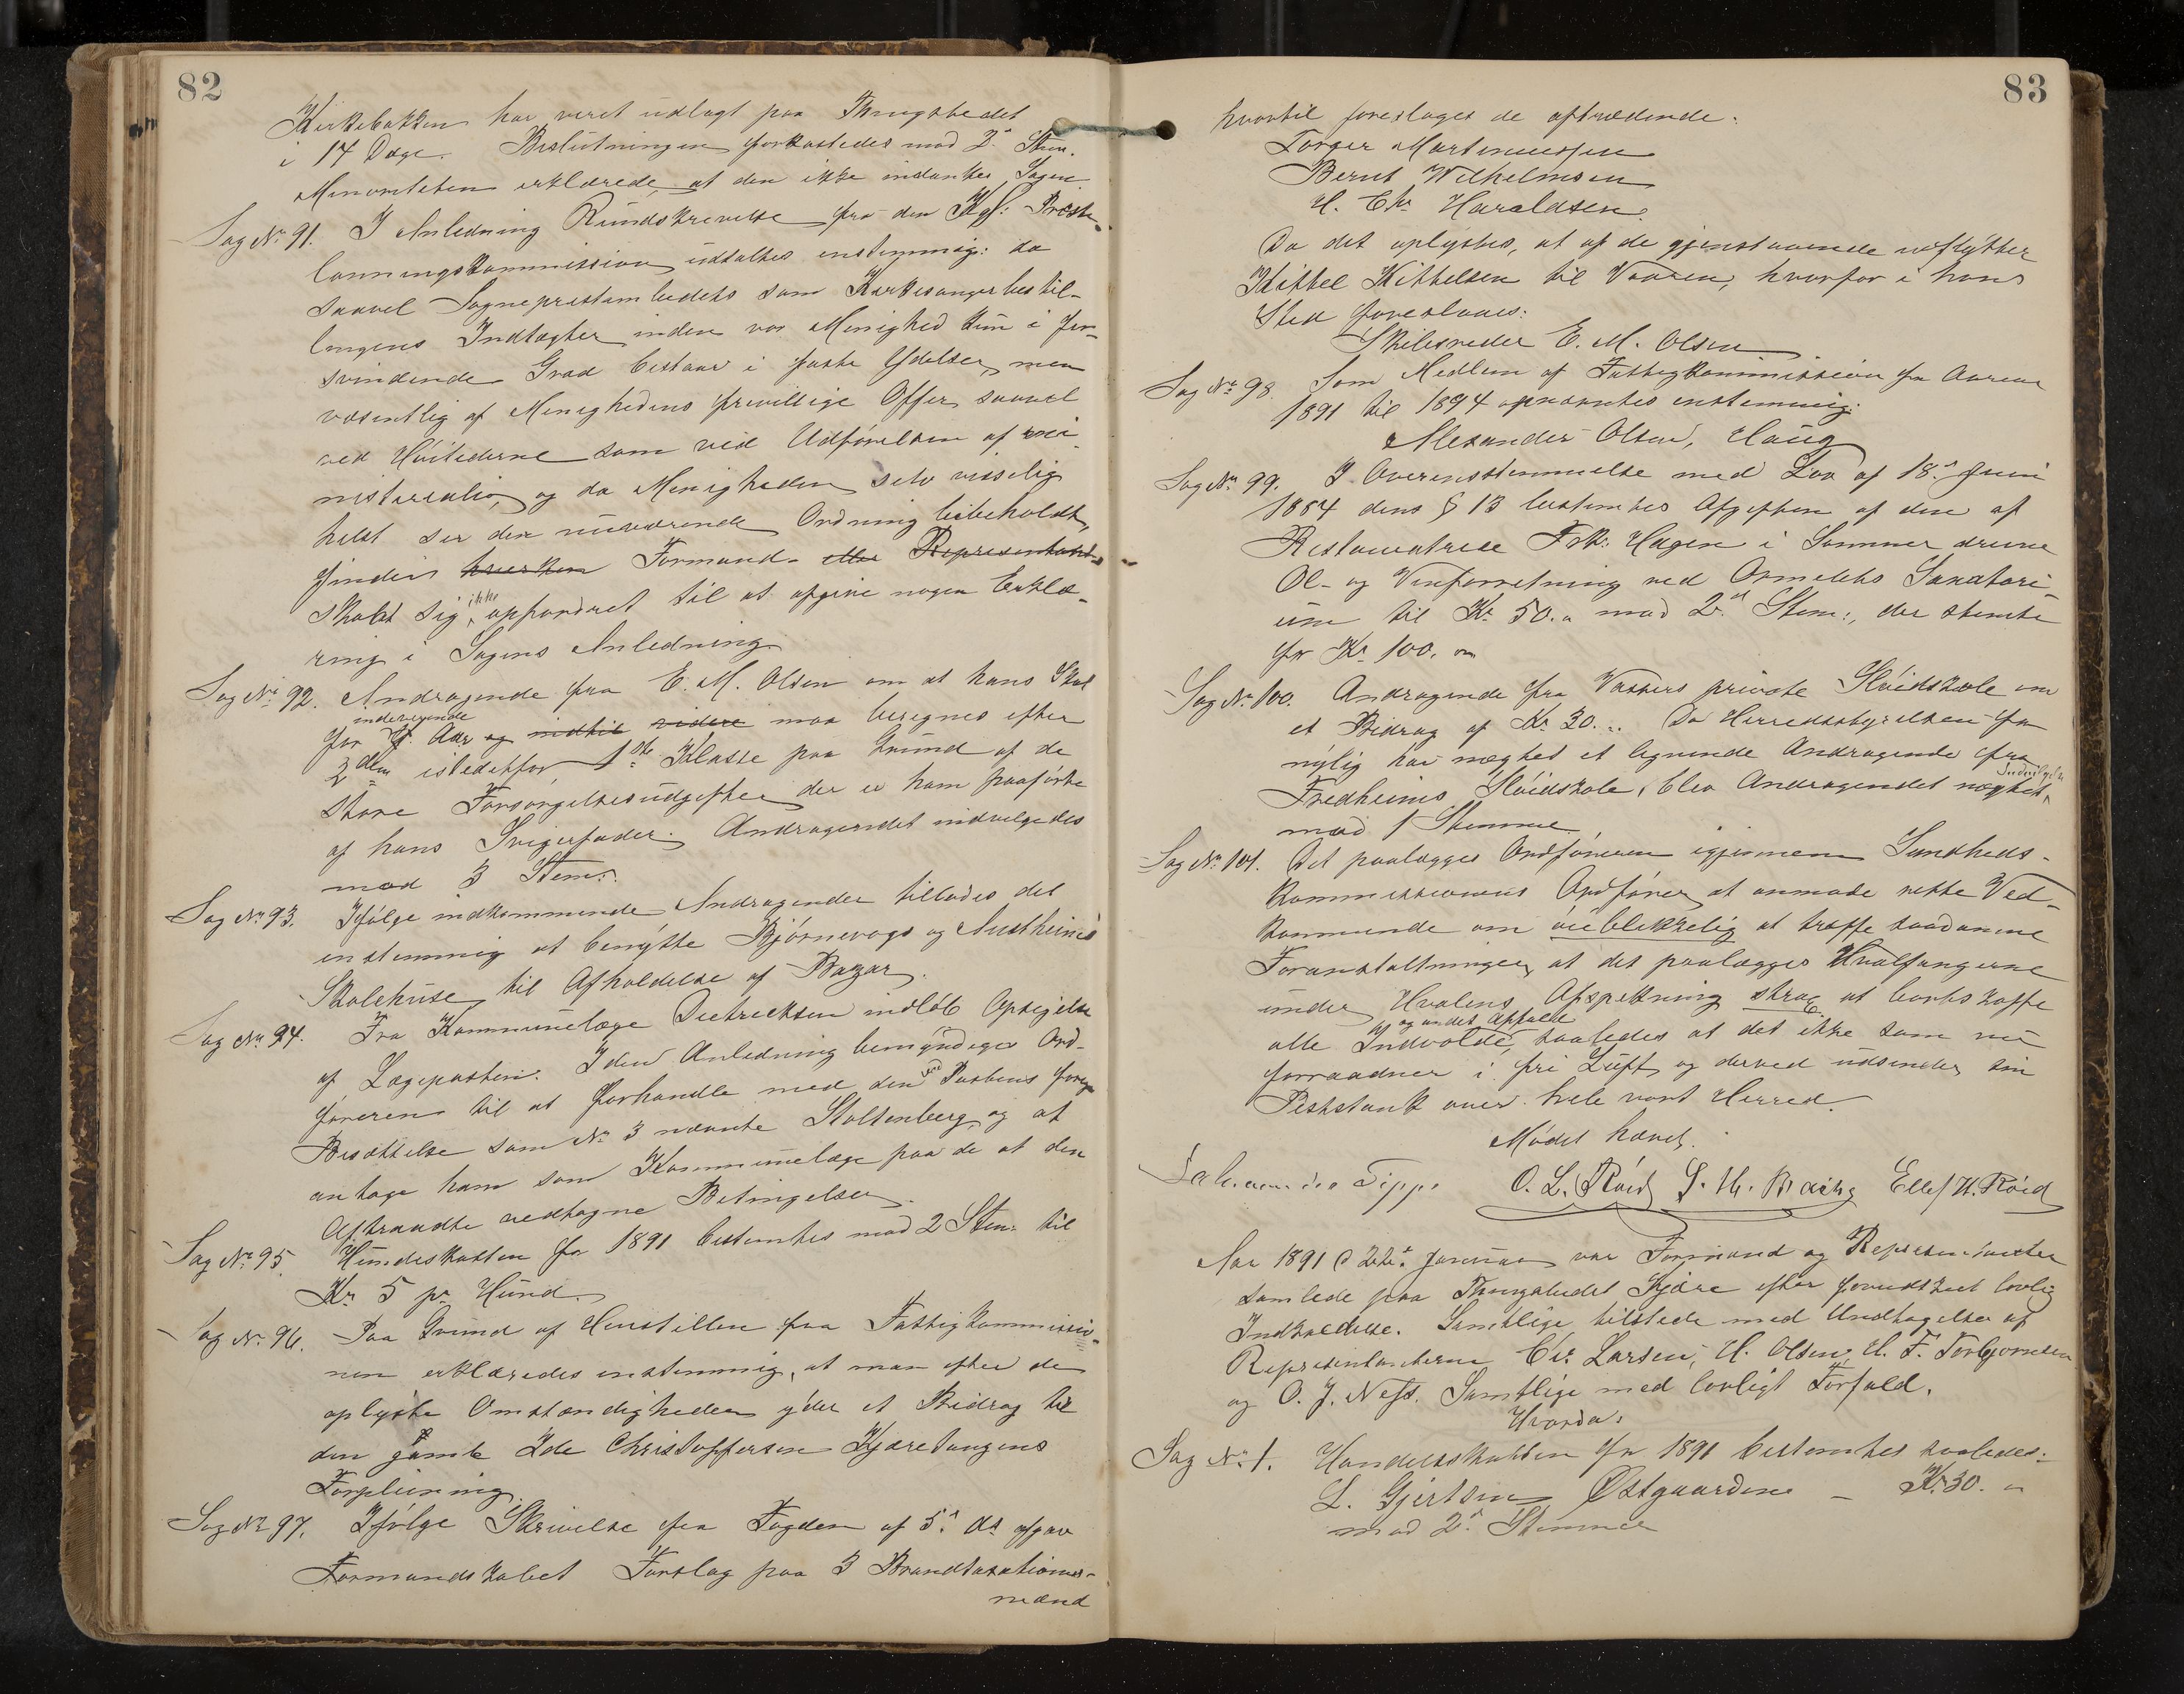 82
Kirkebakken har været udlagt paa Thingstedet
i 14 Dage. Beslutningen forkastedes mod 2 Stem.
Minoriteten erklærede, at den ikke indanker Sagen
Sag No 91. I Anledning Rundskrivelse fra den Kgl: Præste-
lønningskommission udtaltes enstemmig: da
saavel Sognepræstembedets som Kirkesangerbestil-
lingens Indtægter inden vor Menighed kun i for-
svindende Grad bestaar i faste Ydelser, men
væsentlig af Menighedens frivillige Offer saavel
ved Höitiderne som ved Udförelsen af mi-
nisterialia, og da Menigheden selv visselig
helst ser den nuværende Ordning bibeholdt,
finder hverken Formand- eller Repræsentant-
skabet sig ikke opfordret til at afgive nogen Erklæ-
ring i Sagens Anledning
Sag No 92. Andragende fra E. M. Olsen om at hans Skat
for indeværende Aar og indtil videre maa beregnes efter
2den istedetfor 1ste Klasse paa Grund af de
store Forsörgelsesudgifter der er ham paaförte
af hans Svigerfader. Andragendet indvilgedes
mod 3 Stem:
Sag No 93. Ifölge indkommende Andragender tillodes det
enstemmig at benytte Bjórnevogs og Austheims
Skolehuse til Afholdelse af Bazar.
Sag No 94. Fra Kommunelæge Dietrichsen indlöb Opsigelse
af Lægeposten. I den Anledning bemyndiges Ord-
föreren til at forhandle med den ved Postens forrige
Besættelse som No 3 nævnte Stoltenberg og at
antage ham som Kommunelæge paa de at den
Aftraadte vedtagne Betingelser.
Sag No 95. Hundeskatten for 1891 bestemtes mod 2 Stem: til
Kr 5 pr Hund.
Sag No 96. Paa Grund af Henstillen fra Fattigkommissio-
nen erklæredes enstemmig, at man efter de
oplyste Omstændigheder yder et Bidrag til
den gamle Ide Christoffersen Kjæretangens
Forpleining.
Sag No 97. Ifölge Skrivelse fra Fogden af 5. ds afgav
Formandskabet Forslag paa 3 Brandtaxations-
mænd
83
hvortil foreslages de aftrædende:
Torger Martinussen
Bernt Wilhelmsen
H. Chr Haraldsen.
Da det oplystes, at af de gjenstaaende udflytter
Kittel Kittelsen til Vaaren, hvorfor i hans
Sted foreslaaes:
Skibsreder E. M. Olsen
Sag No 98. Som Medlem af Fattigkommission for Aarene
1891 til 1894 opnævntes enstemmig:
Alexander Olsen, Haug
Sag No 99. I Overensstemmelse med Lov af 18. Juni
1884 dens § 13 bestemtes Afgiften af den af
Restauratrice Frk: Hagen i Sommer drevne
Öl- og Vinforretning ved Ormelets Sanatori-
um til Kr 50. " mod 2 Stem:, der stemte
for Kr 100. "
Sag No 100. Andragende fra Vassers private Slöidskole om
et Bidrag af Kr 30. ". Da Herredsstyrelsen for
nylig har nægtet et lignende Andragende fra
Fredheims Slöidskole, blev Andragendet nægtet Indvilgelse
mod 1 Stemme
Sag No 101. Det paalægges Ordföreren igjennem Sundheds-
kommissionens Ordförer at anmode rette Ved-
kommende om öieblikkelig at træffe saadanne
Foranstaltninger, at det paalægges Hvalfangerne
under Hvalens Afspekning strax at bortskaffe
alle Indvolde og andet Affald, saaledes at det ikke som nu
forraadner i fri Luft og derved udsender sin
Peststank over hele vort Herred.
Mödet hævet.
O. L. Röed Ellef H. Röed
Aar 1891 d 22. Januar var Formænd og Repræsentanter
samlede paa Thingstedet Kjære efter forudskeet lovlig
Indkaldelse. Samtlige tilstede med Undtagelse af
Repræsentanterne Chr. Larsen, H. Olsen, H. F. Torbjörnsen
og O. J. Næss. Samtlige med lovligt Forfald.
Hvorda:
Sag No 1. Handelsskatten for 1891 bestemtes saaledes:
L. Gjertsen Østgaardene – Kr 30. "
mod 2 Stemmer